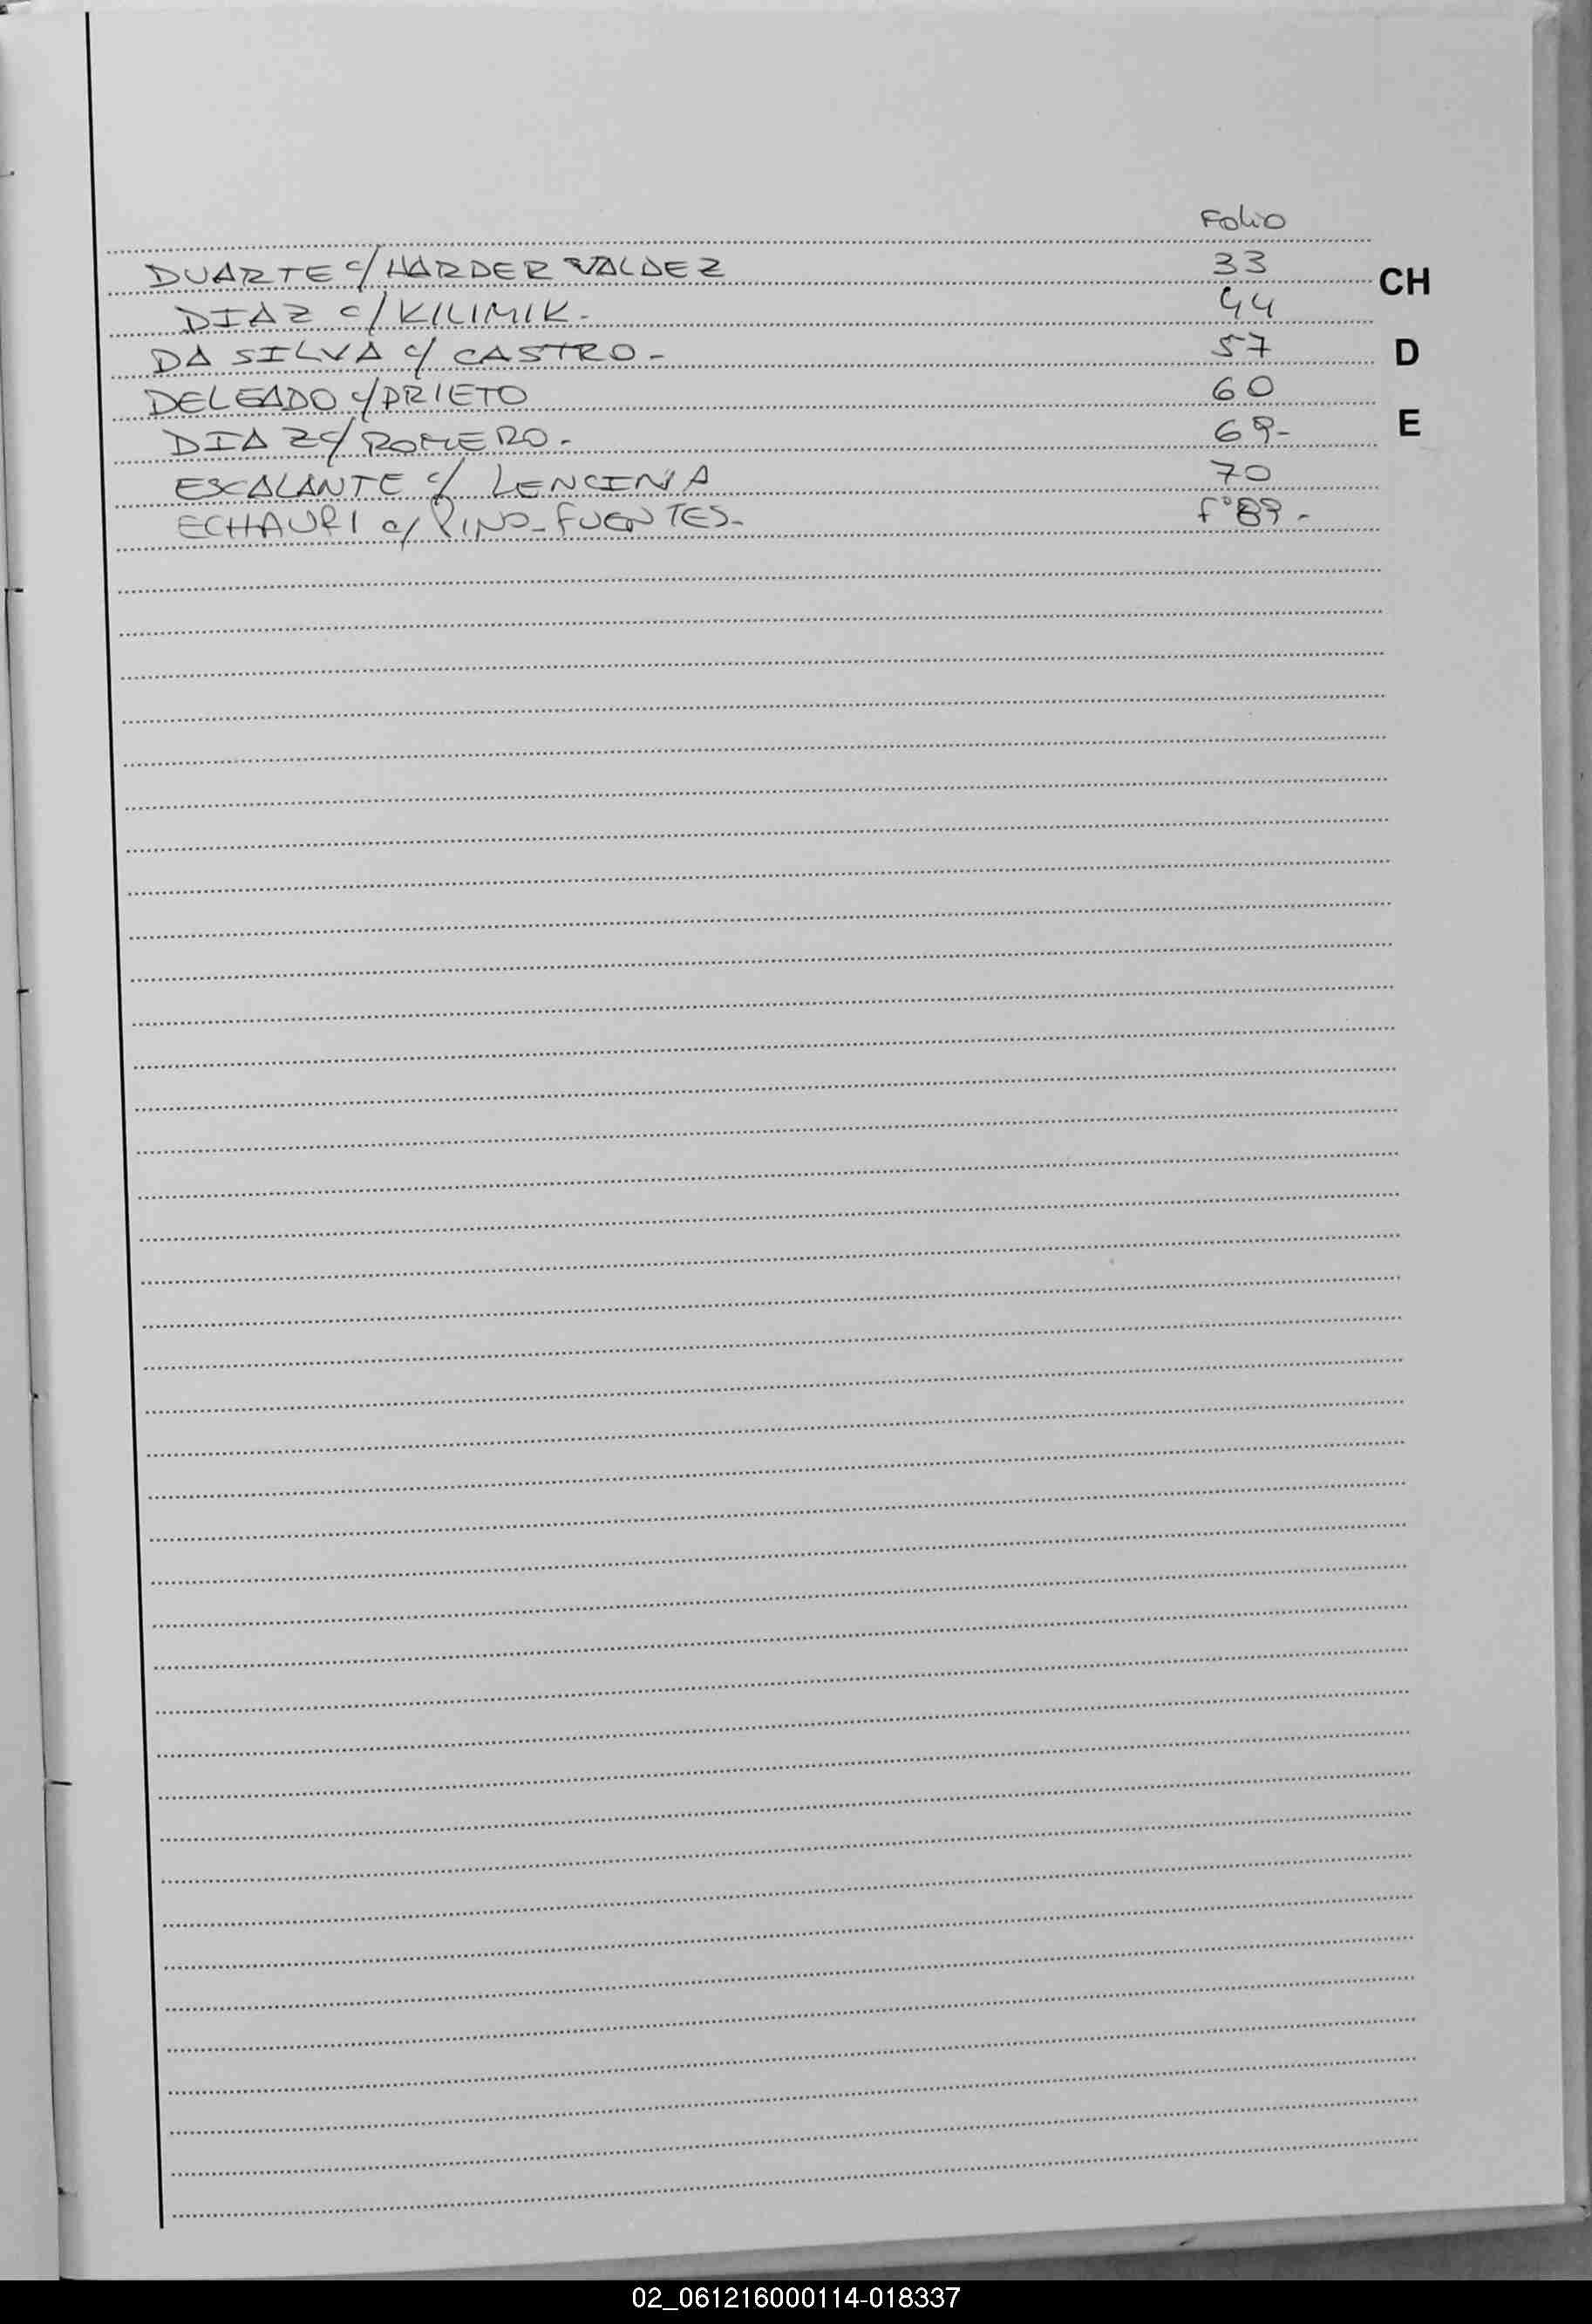 Folio
DUARTE c/ HARDER VALDEZ 33
CH
DIAZ c/ KILIMIK.- 44
DA SILVA c/ CASTRO.- 57
D
DELGADO c/ PRIETO 60
DIAZ c/ ROMERO.- 69-
E
ESCALANTE c/ LENCINA 70
ECHAURI c/ PINO-FUENTES- f°89.-
02_061216000114-018337